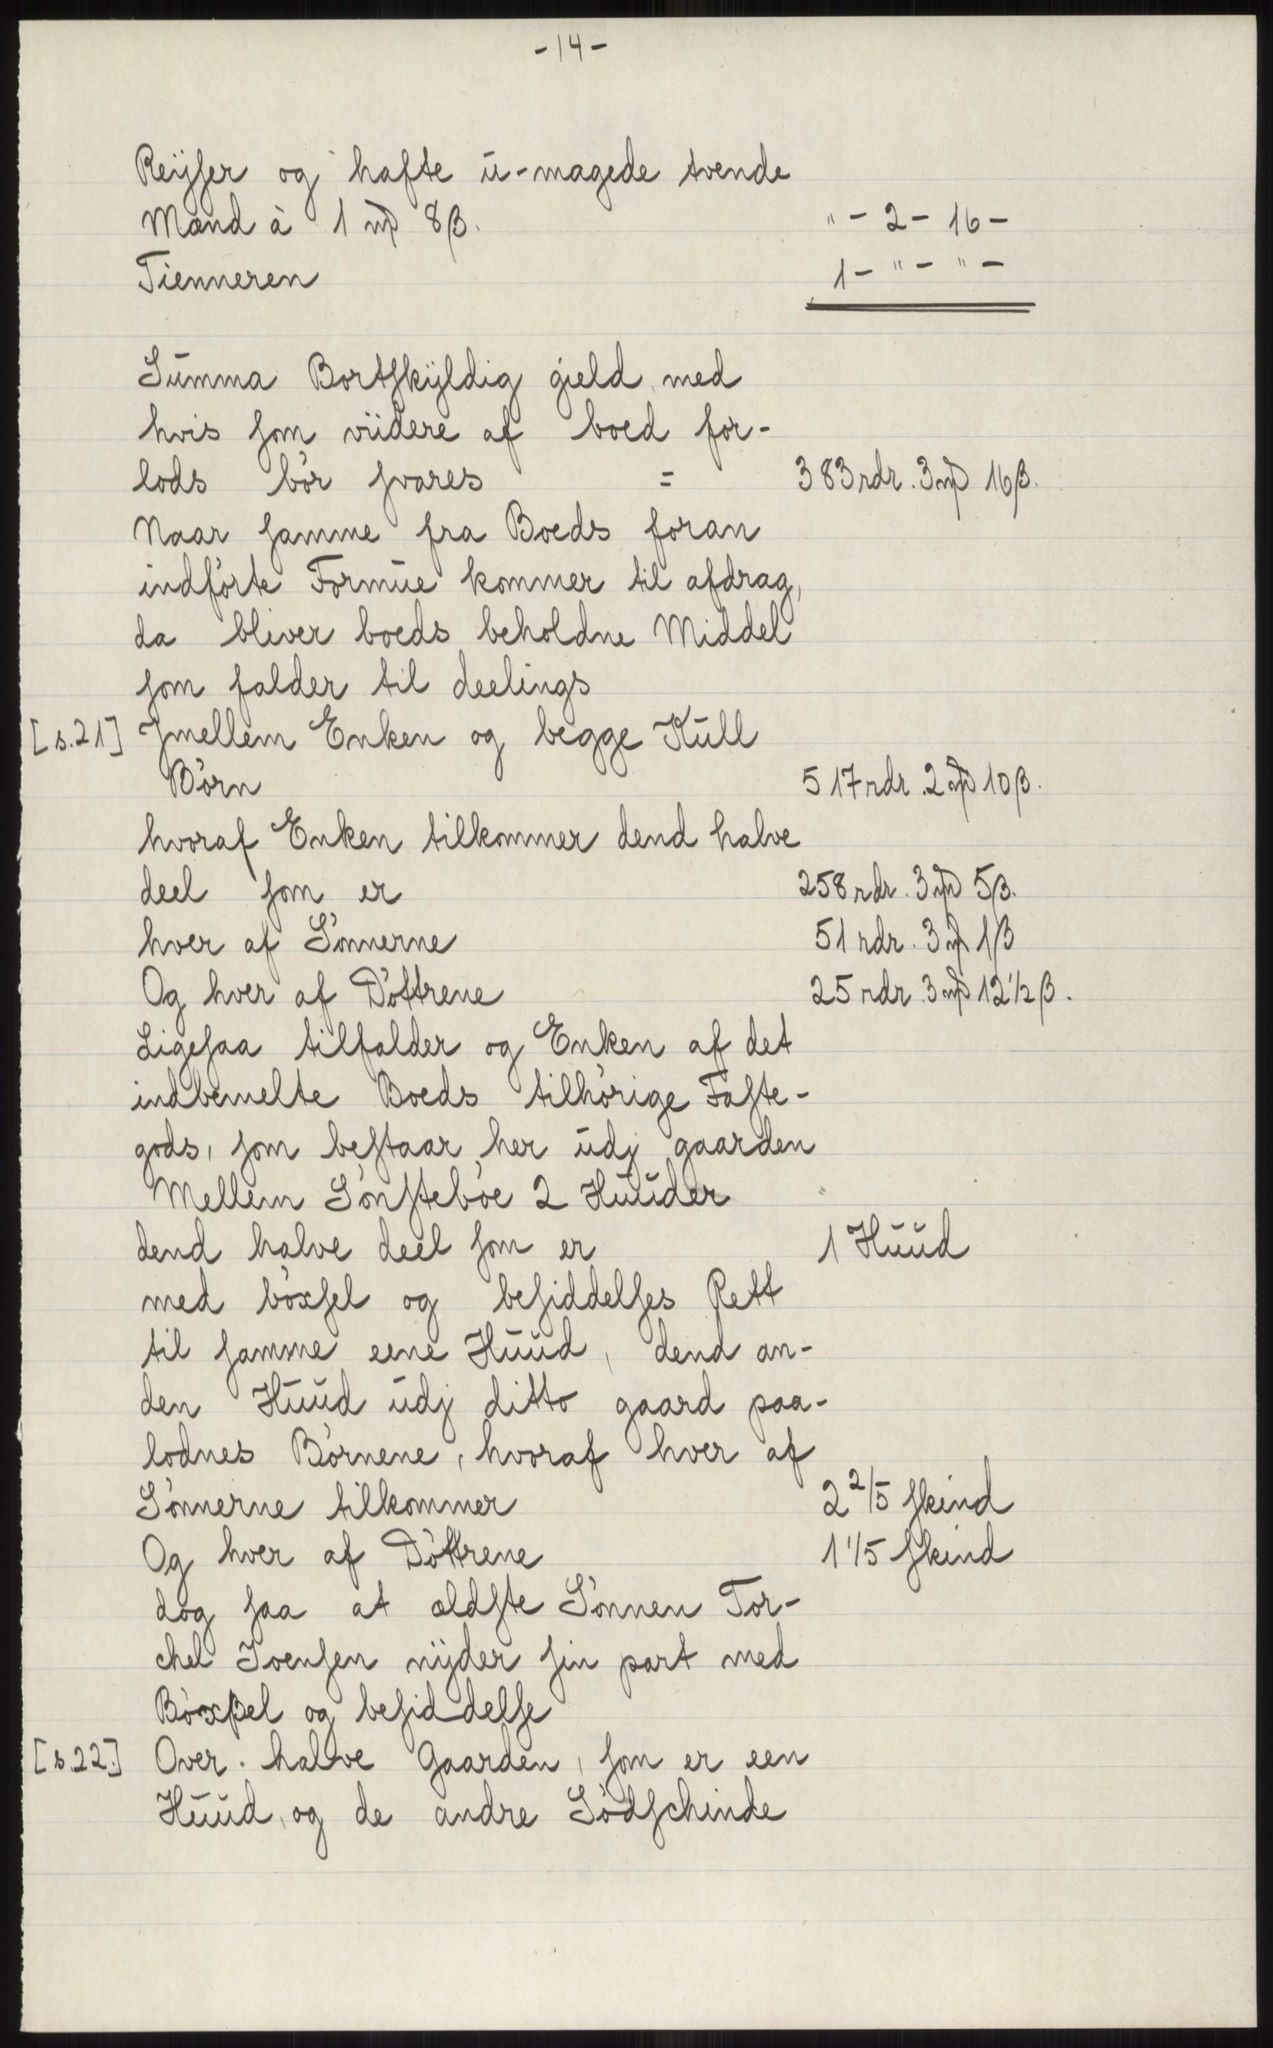 -14-
Reijser og hafte u-magede tvende
Mand à 1 mß 8β. " - 2 - 16 -
Tienneren 1 - " - " -
Summa Bortskÿldig gield med
hvis som viidere af boed for-
lods bør svares = 383 rdr. 3 mß 16β.
Naar samme fra Boeds foran
indførte Formue kommer til afdrag,
da bliver boeds beholdne Middel
som falder til deelings
[s.21] Jmellem Enken og begge Kull
Børn 517 rdr. 2 mß 10β.
hvoraf Enken tilkommer dend halve
deel som er 258 rdr. 3 mß 5β.
hver af Sønnerne 51 rdr. 3 mß 1β
Og hver af Døttrene 25 rdr. 3 mß 12 1/2 β.
Ligesaa tilfalder og Enken af det
indbemelte Boeds tilhørige Faste-
gods, som bestaar her udj gaarden
Mellem Sønstebøe 2 Huuder
dend halve deel som er 1 Huud
med bøxsel og besiddelses Rett
til samme eene Huud, dend an-
den Huud udj ditto gaard paa-
lodnes Børnene, hvoraf hver af
Sønnerne tilkommer 2 2/5 skind
Og hver af Døttrene 1 1/5 skind
dog saa at ældste Sønnen Tor-
chel Svensen nÿder sin part med
Bøxβel og besiddelse
[s.22.] Over halve Gaarden, som er een
Huud, og de andre Sødschinde